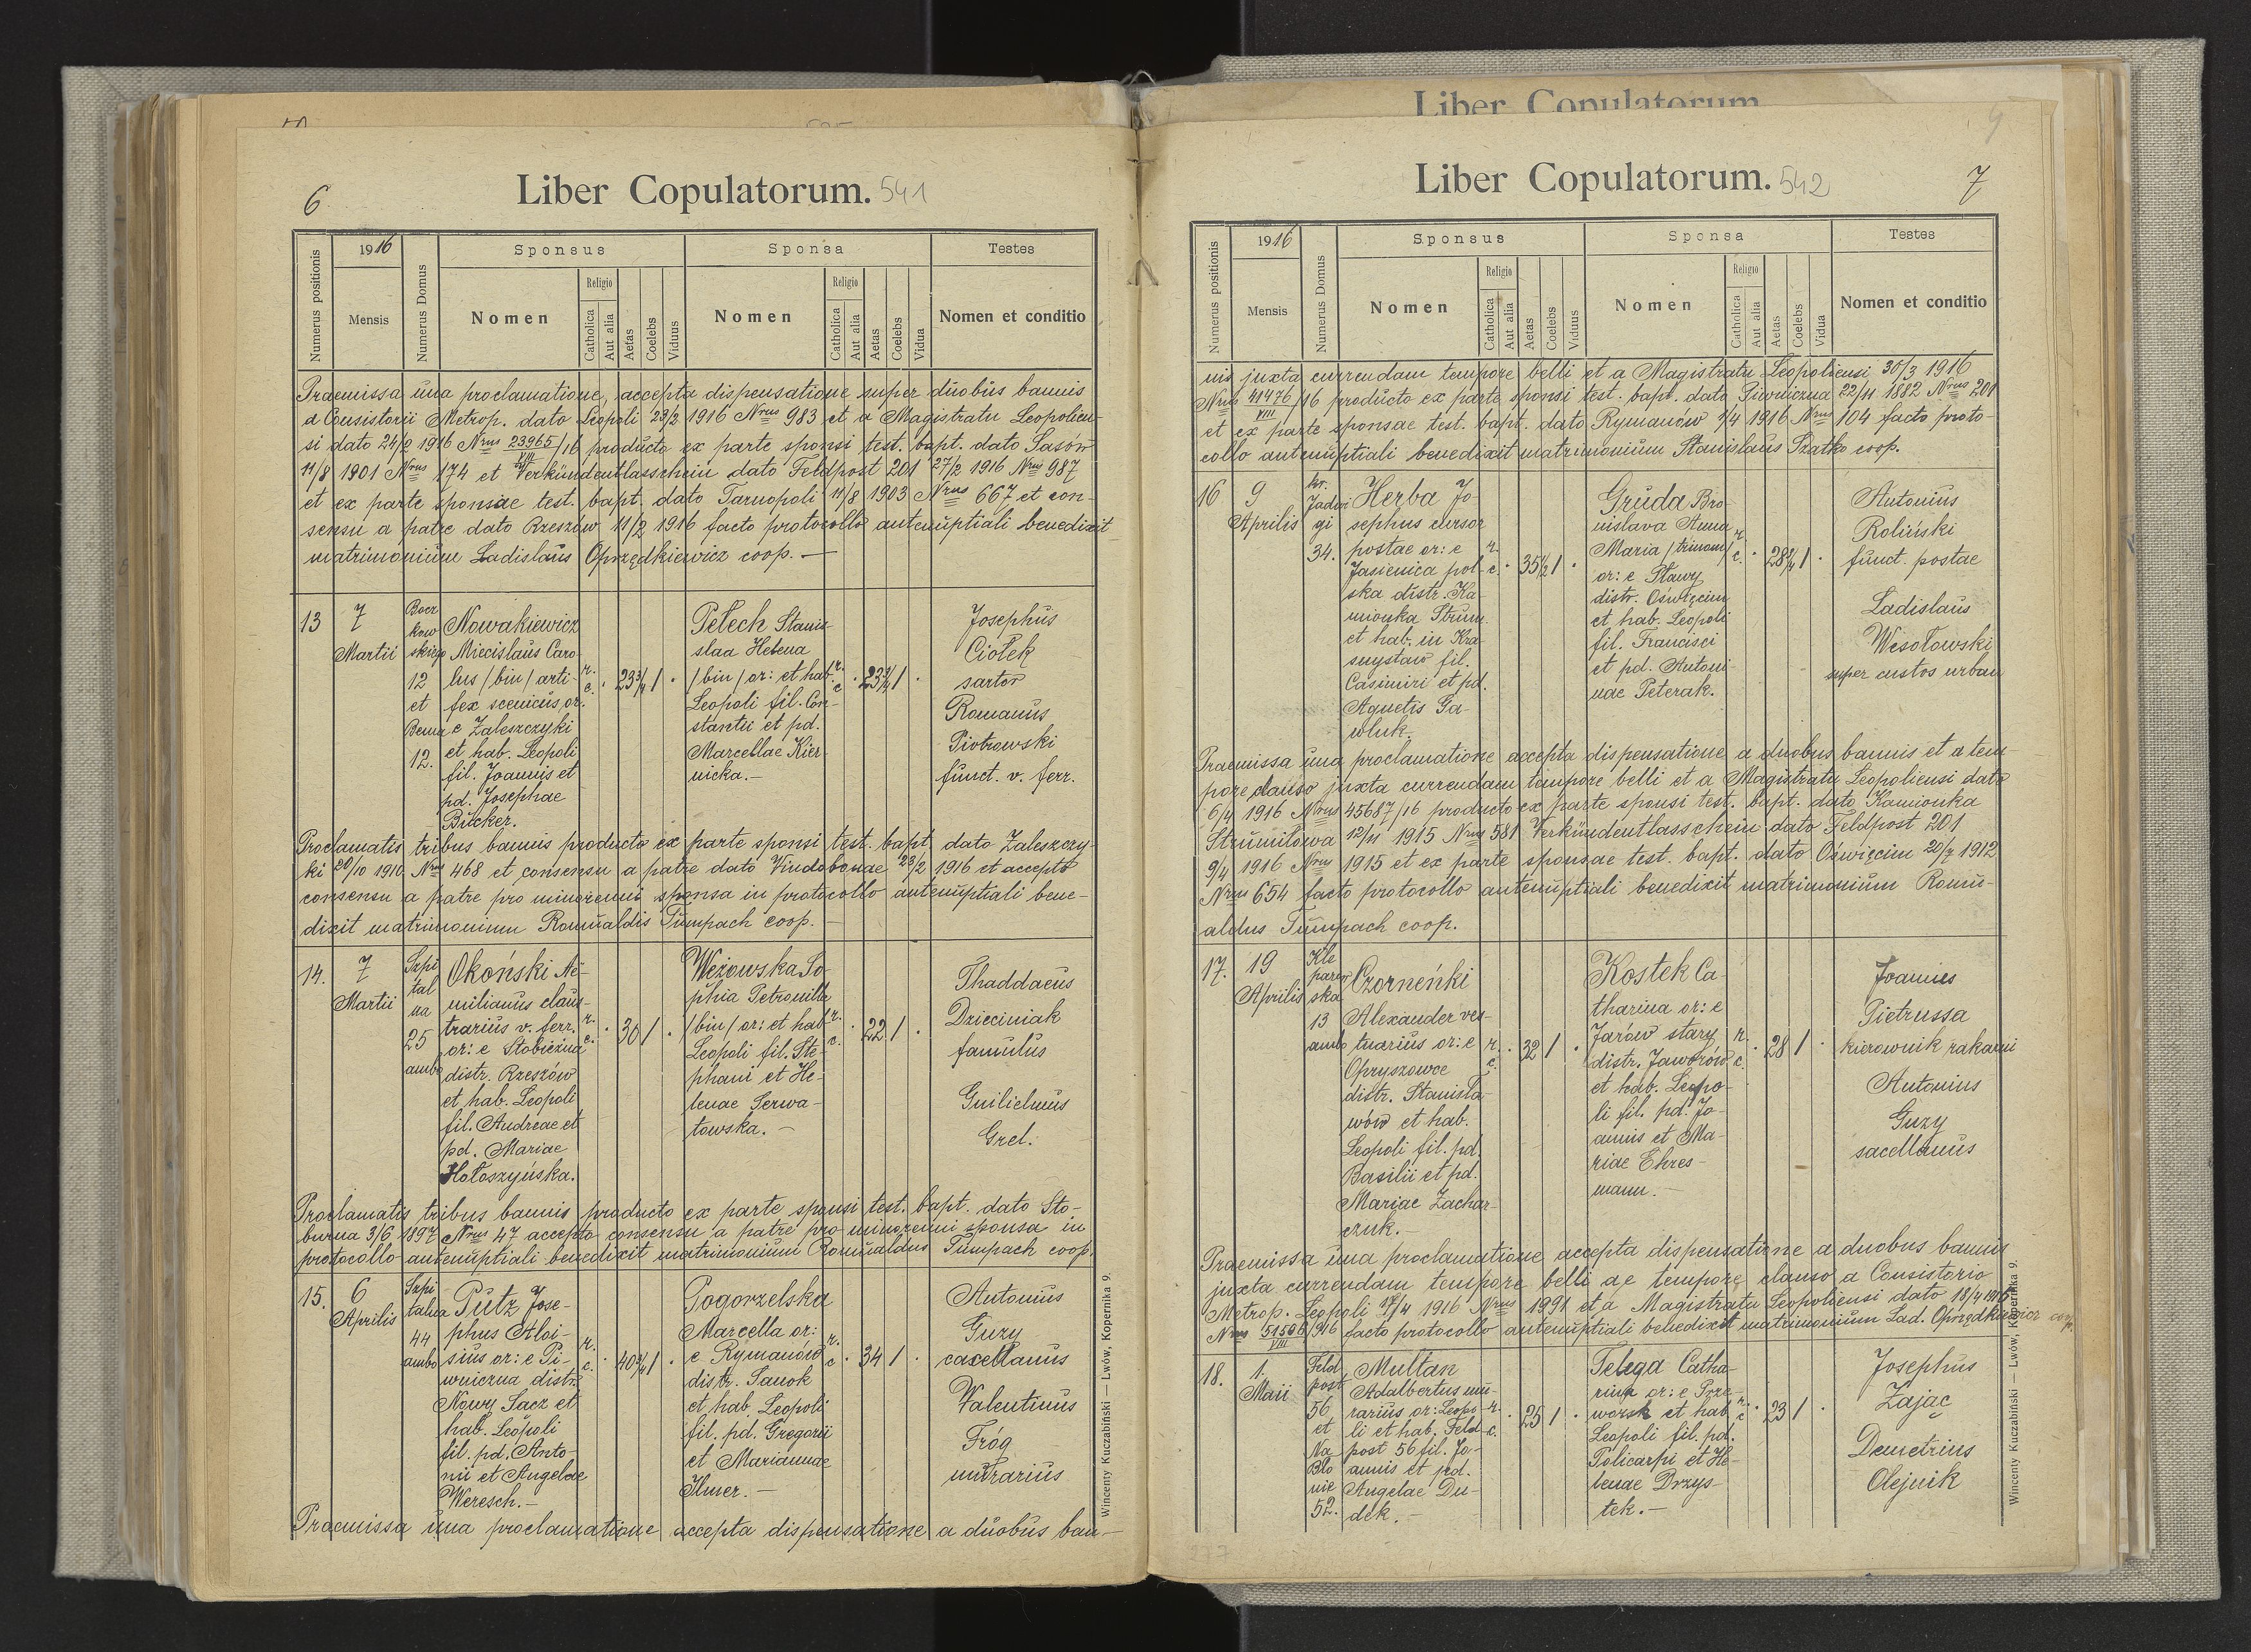 6
Liber Copulatorum. 541
Numerus positionis
1916
Mensis
Numerus Domus
Sponsus
Nomen
Religio
Catholica
Aut alia
Aetas
Coelebs
Viduus
Sponsa
Nomen
Religio
Catholica
Aut alia
Aetas
Coelebs
Vidua
Testes
Nomen et conditio
Praemissa una proclamatione, accepta dispensatione super duobus bannis
a Consistorii Metrop. dato Leopoli 23/2 1916 Nrus 983 et a Magistratu Leopolien-
si dato 24/2 1916 Nrus 23965/VIII/16 producto ex parte sponsi test. bapt. dato Sasów
11/8 1901 Nrus 174 et Verkündentlasschein dato Feldpost 201 27/2 1916 Nrus 987
et ex parte sponsae test. bapt. dato Tarnopoli 11/8 1903 Nrus 667 et con-
sensu a patre dato Rzeszów 11/2 1916 facto protocollo antenuptiali benedixit
matrimonium Ladislaus Oprzędkiewicz coop. —
13
7
Martii
Bocz
kow
skiego
12
et
Bema
12.
Nowakiewicz
Miecislaus Caro-
lus /bin/ arti-
fex scenicus, or:
e Zaleszczyki
et hab. Leopoli
fil. Joannis et
pd. Josephae
Bilcker.
r. c. · 23 3/4 1 ·
Pelech Stanis-
slaa Helena
/bin/ or: et hab.
Leopoli fil. Con-
stantii et pd.
Marcellae Kier-
nicka. —
r. c · 23 3/4 1 ·
Josephus
Ciołek
sartor
Romanus
Piotrowski
funct. v. ferr.
Proclamatis tribus bannis producto ex parte sponsi test. bapt. dato Zaleszczy-
ki 20/10 1910 Nrus 468 et consensu a patre dato Vindobonae 23/2 1916 et accepto
consensu a patre pro minorenni sponsa in protocollo antenuptiali bene-
dixit matrimonium Romualdis Tumpach coop. —
14.
7
Martii
Szpi
tal
na
25
ambo
Okoński Ae-
milianus claus-
trarius v. ferr.
or: e Stobierna
distr. Rzeszów
et hab. Leopoli
fil. Andreae et
pd. Mariae
Hołoszyńska.
r. c. · 30 1 ·
Weżowska So-
phia Petronilla
/bin/ or: et hab
Leopoli fil. Ste-
phani et He-
lenae Serwa-
towska. —
r. c. · 22 1 ·
Thaddaeus
Dzieciniak
famulus
Guilielmus
Grel.
Proclamatis tribus bannis producto ex parte sponsi test. bapt. dato Sto-
burna 3/6 1897 Nrus 47 accepto consensu a patre pro minorenni sponsa in
protocollo antenuptiali benedixit matrimonium Romualdus Tumpach coop.
15.
6
Aprilis
Szpi
talna
44
ambo
Pütz Jose-
phus Aloi-
sius or: e Pi-
wniczna distr.
Nowy Sacz et
hab. Leopoli
fil. pd. Anto-
nii et Angelae
Weresch. —
r. c. · 40 3/4 1 ·
Pogorzelska
Marcella or:
e Rymanów
distr. Sanok
et hab. Leopoli
fil. pd. Gregorii
et Mariannae
Ilmer. —
r. c · 34 1 ·
Antonius
Guzy
cacellanus
Valentinus
Fróg
murarius
Praemissa una proclamatione accepta dispensatione a duobus ban—
Wincenty Kuczabiński — Lwów, Kopernika 9.
Liber Copulatorum
Liber Copulatorum. 542
7
Numerus positionis
1916
Mensis
Numerus Domus
Sponsus
Nomen
Religio
Catholica
Aut alia
Aetas
Coelebs
Viduus
Sponsa
Nomen
Religio
Catholica
Aut alia
Aetas
Coelebs
Vidua
Testes
Nomen et conditio
nis juxta currendam tempore belli et a Magistratu Leopoliensi 30/3 1916
Nrus 41476/VIII/16 producto ex parte sponsi test. bapt. dato Piwniczna 22/11 1882 Nrus 201
et ex parte sponsae test. bapt. dato Rymanów 1/4 1916 Nrus 104 facto proto-
collo antenuptiali benedixit matrimonium Stanislaus Szatko coop.
16
9
Aprilis
kr.
Jadwi
gi
34.
Herba Jo-
sephus cursor
postae or: e
Jasienica pol-
ska distr. Ka-
mionka Strum.
et hab. in Kra-
snystaw fil.
Casimiri et pd.
Agnetis Ga-
wluk.
r. c. · 35 1/2 1 ·
Gruda Bro-
nislava Anna
Maria /trinom/
or: e Stawy
distr. Oświęcim
et hab. Leopoli
fil. Francisci
et pd. Antoni-
nae Peterak.
r. c. · 28 3/4 1 ·
Antonius
Roliński
funct. postae
Ladislaus
Wesołowski
super custos urban
Praemissa una proclamatione accepta dispensatione a duobus bannis et a tem-
pore clauso juxta currendam tempore belli et a Magistratu Leopoliensi dato
6/4 1916 Nrus 45687/16 producto ex parte sponsi test. bapt. dato Kamionka
Strumiłowa 12/11 1915 Nrus 581 Verkündentlasschein dato Feldpost 201
9/4 1916 Nrus 1915 et ex parte sponsae test. bapt. dato Oświęcim 20/7 1912
Nrus 654 facto protocollo antenuptiali benedixit matrimonium Romu-
aldus Tumpach coop.
17.
19
Aprilis
Kle
parow
ska
13
ambo
Czorneńki
Alexander ves-
tuarius or: e
Opryszowce
distr. Stanisła-
wów et hab.
Leopoli fil. pd.
Basilii et pd.
Mariae Zachar-
czuk. —
r. c. · 32 1 ·
Kostek Ca-
tharina or: e
Jarów stary
distr. Jaworów
et hab. Leopo-
li fil. pd. Jo-
annis et Ma-
riae Ehres-
mann. —
r. c. · 28 1 ·
Joannes
Pietrussa
kierownik rakarni
Antonius
Guzy
sacellanus
Praemissa una proclamatione accepta dispensatione a duobus bannis
juxta currendam tempore belli ac tempore clauso a Consistorio
Metrop. Leopoli 17/4 1916 Nrus 1991 et a Magistratu Leopoliensi dato 18/4 1916
Nrus /VIII/916 facto protocollo antenuptiali benedixit matrimonium Lad. Oprzędkiewicz coop.
18.
1.
Maii
Feld
post
56
et
Na
Bło
nie
52.
Multan
Adalbertus mu-
rarius or: Leopo-
li et hab. Feld-
post 56 fil. Jo-
annis et pd.
Angelae Du-
dek. —
r. c. · 25 1 ·
Telega Catha-
rina or: e Prze-
worsk et hab
Leopoli fil. pd.
Policarpi et He-
lenae Brzys-
tek. —
r. c · 23 1 ·
Josephus
Zając
Demetrius
Olejnik
Wincenty Kuczabiński — Lwów, Kopernika 9.